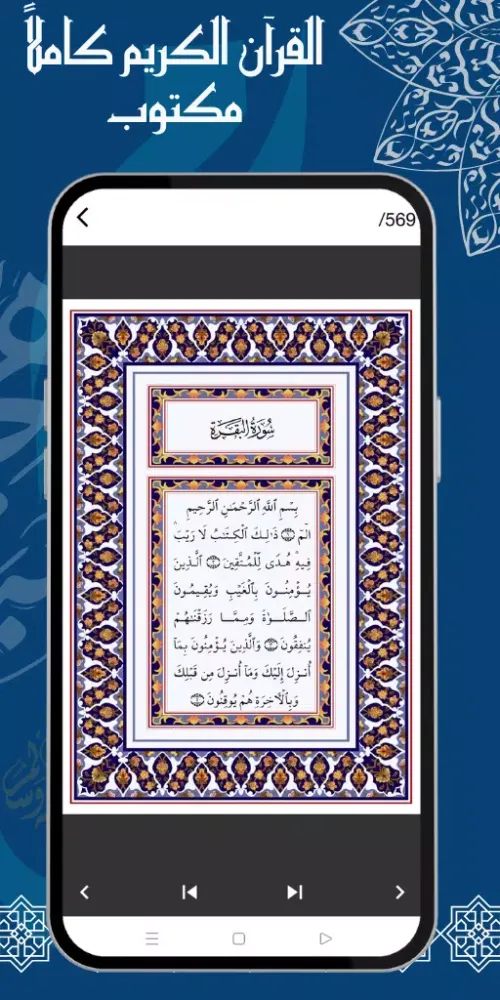 القرآن الكريم كاملاً
مكتوب
/569
سُورَةُ البَقَرَةِ
بِسْمِ ٱللَّهِ ٱلرَّحْمَٰنِ ٱلرَّحِيمِ
الٓمٓ ۝ ذَٰلِكَ ٱلْكِتَٰبُ لَا رَيْبَ ۛ
فِيهِ ۛ هُدًى لِّلْمُتَّقِينَ ۝ ٱلَّذِينَ
يُؤْمِنُونَ بِٱلْغَيْبِ وَيُقِيمُونَ
ٱلصَّلَوٰةَ وَمِمَّا رَزَقْنَٰهُمْ
يُنفِقُونَ ۝ وَٱلَّذِينَ يُؤْمِنُونَ بِمَآ
أُنزِلَ إِلَيْكَ وَمَآ أُنزِلَ مِن قَبْلِكَ
وَبِٱلْءَاخِرَةِ هُمْ يُوقِنُونَ ۝